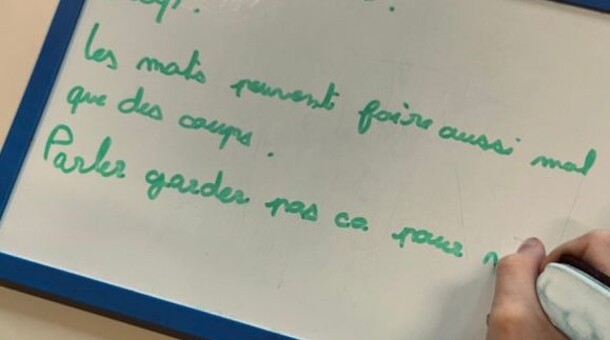 les mots peuvent faire aussi mal
que des coups.
Parler garder pas ca pour